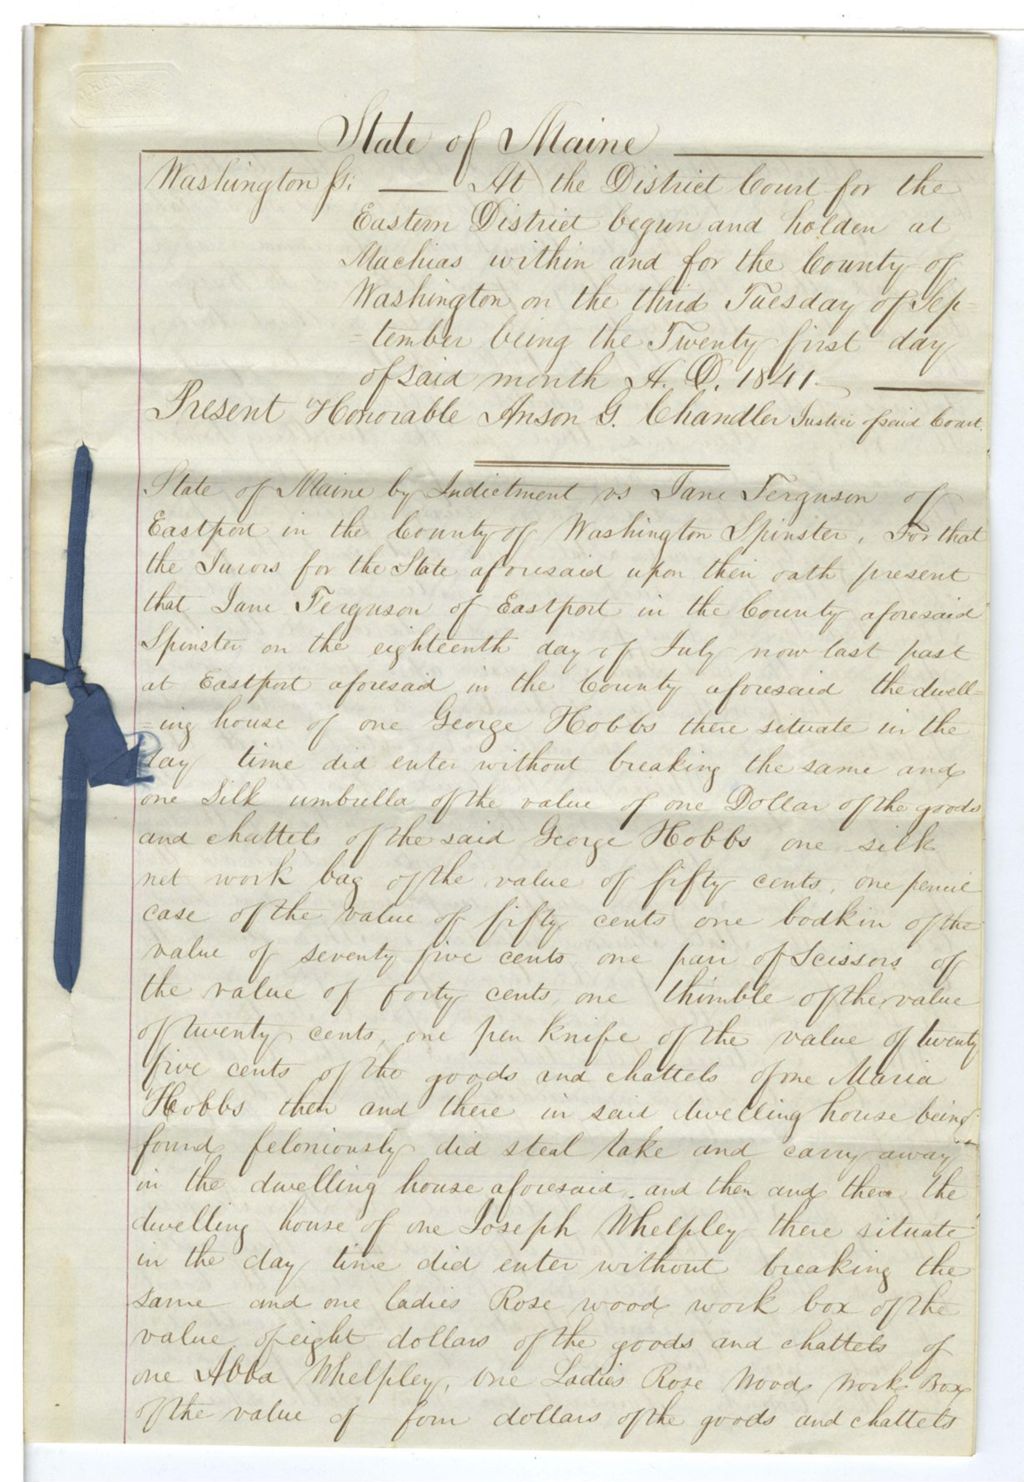 State of Maine
Washington Ss: At the District Court for the
Eastern District begun and holden at
Machias within and for the County of
Washington on the third Tuesday of Sep-
=tember being the Twenty first day
of said month A. D. 1841.
Present Honorable Anson G. Chandler Justice of said Court.
State of Maine by Indictment vs Jane Ferguson of
Eastport in the County of Washington Spinster. For that
the Jurors for the State aforesaid upon their oath present
that Jane Ferguson of Eastport in the County aforesaid
Spinster on the eighteenth day of July now last past
at Eastport aforesaid in the County aforesaid the dwell-
=ing house of one George Hobbs there situate in the
day time did enter without breaking the same and
one Silk umbrella of the value of one Dollar of the goods
and chattels of the said George Hobbs one silk
net work bag of the value of fifty cents, one pencil
case of the value of fifty cents one bodkin of the
value of seventy five cents one pair of Scissors of
the value of forty cents, one thimble of the value
of twenty cents, one pen knife of the value of twenty
five cents of the goods and chattels of one Maria
Hobbs then and there in said dwelling house being
found feloniously did steal take and carry away
in the dwelling house aforesaid. and then and there the
dwelling house of one Joseph Whelpley there situate
in the day time did enter without breaking the
same and one ladies Rose wood work box of the
value of eight dollars of the goods and chattels of
one Abba Whelpley, One Ladies Rose Wood Work Box
of the value of four dollars of the goods and chattels